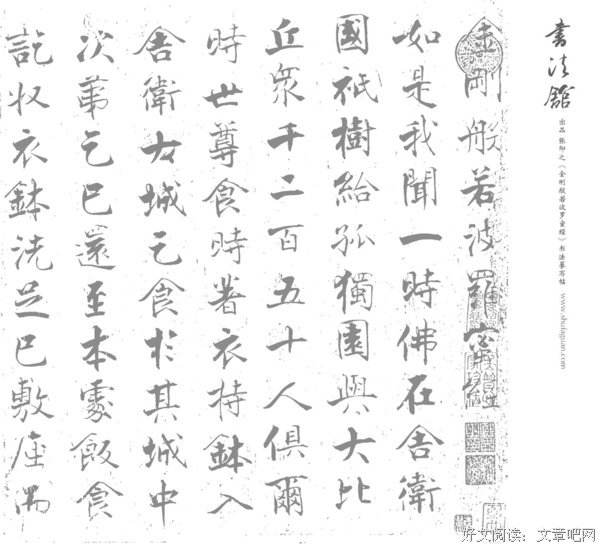 书法馆
出品 张即之《金刚般若波罗蜜经》书法摹写帖 www.shufaguan.com
金剛般若波羅蜜經
如是我聞一時佛在舍衛
國祇樹給孤獨園與大比
丘眾千二百五十人俱爾
時世尊食時著衣持鉢入
舍衛大城乞食於其城中
次第乞已還至本處飯食
訖收衣鉢洗足已敷座而
好文阅读：文章吧网